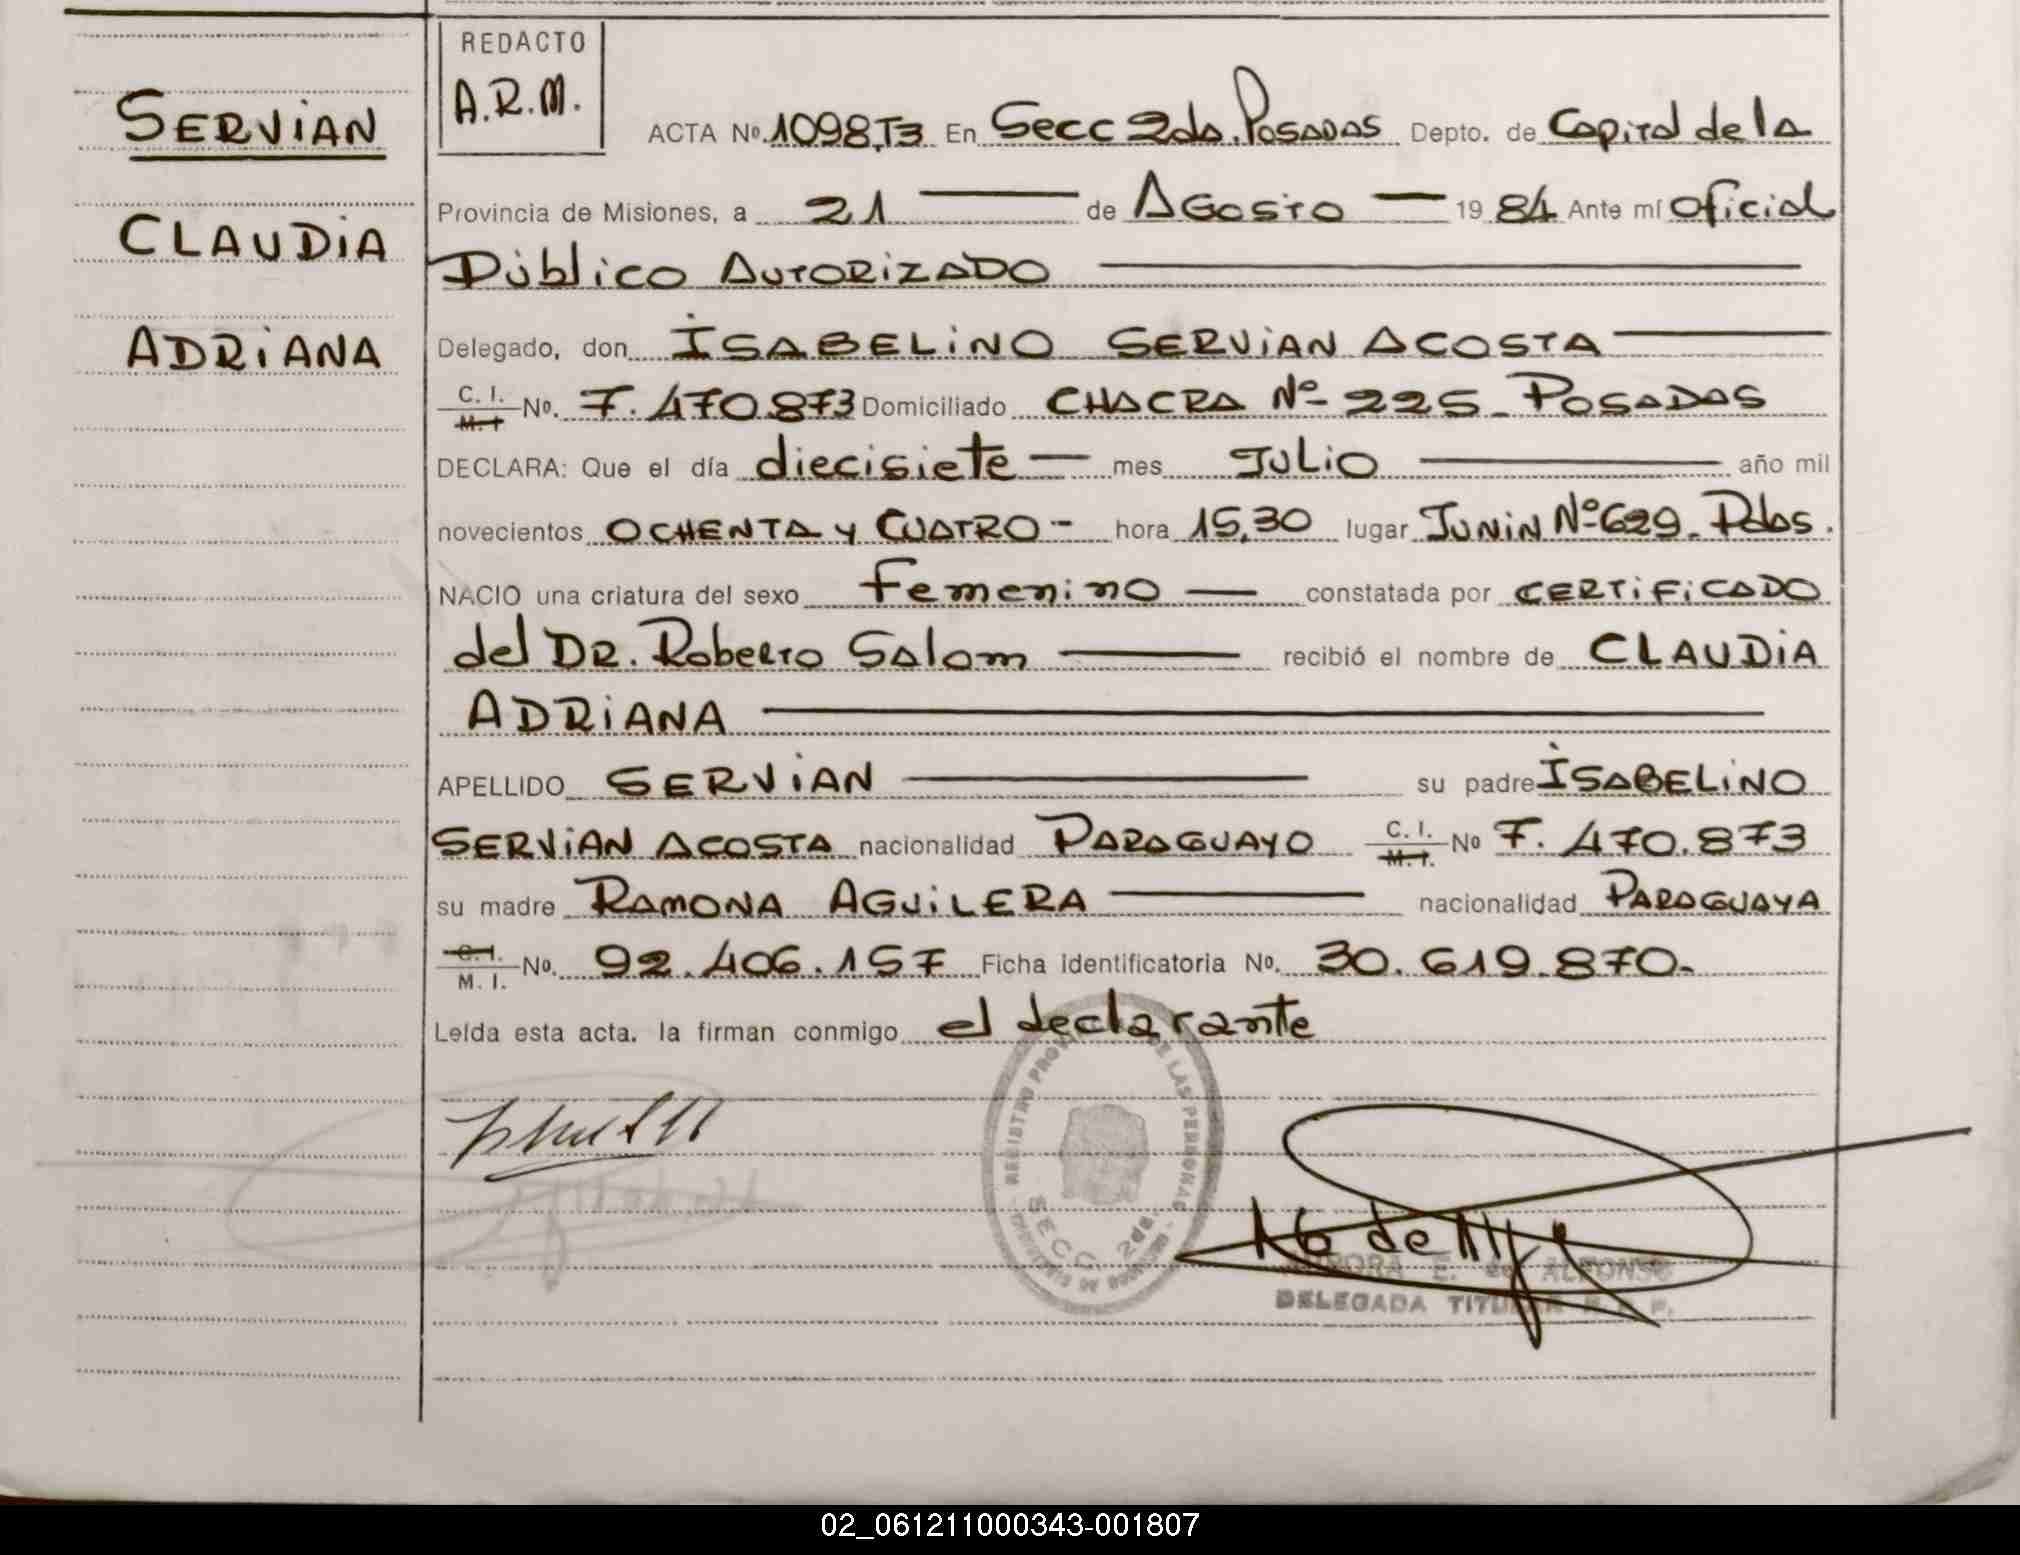 REDACTO
A.R.M.
SERVIAN
CLAUDIA
ADRIANA
ACTA Nº. 1098,T3 En Secc 2da. POSADAS Depto. de Capital de la
Provincia de Misiones, a 21 de AGOSTO 19 84 Ante mí Oficial
Público AUTORIZADO
Delegado, don ISABELINO SERVIAN ACOSTA
C. I. M. I Nº. 7.470.873 Domiciliado CHACRA Nº 225 - POSADAS
DECLARA: Que el día diecisiete mes JULIO año mil
novecientos OCHENTA y CUATRO - hora 15,30 lugar JUNIN Nº 629 - Pdas.
NACIO una criatura del sexo Femenino constatada por CERTIFICADO
del DR. Roberto Salom recibió el nombre de CLAUDIA
ADRIANA
APELLIDO SERVIAN su padre ISABELINO
SERVIAN ACOSTA nacionalidad PARAGUAYO C. I. M. I. Nº 7.470.873
su madre RAMONA AGUILERA nacionalidad PARAGUAYA
C. I. M. I. Nº. 92.406.157 Ficha identificatoria Nº. 30.619.870.-
Leída esta acta, la firman conmigo el declarante
REGISTRO DE LAS PERSONAS
SECC. 2da.
AURORA E. de ALFONSO
DELEGADA TITULAR R. P. P.
02_061211000343-001807